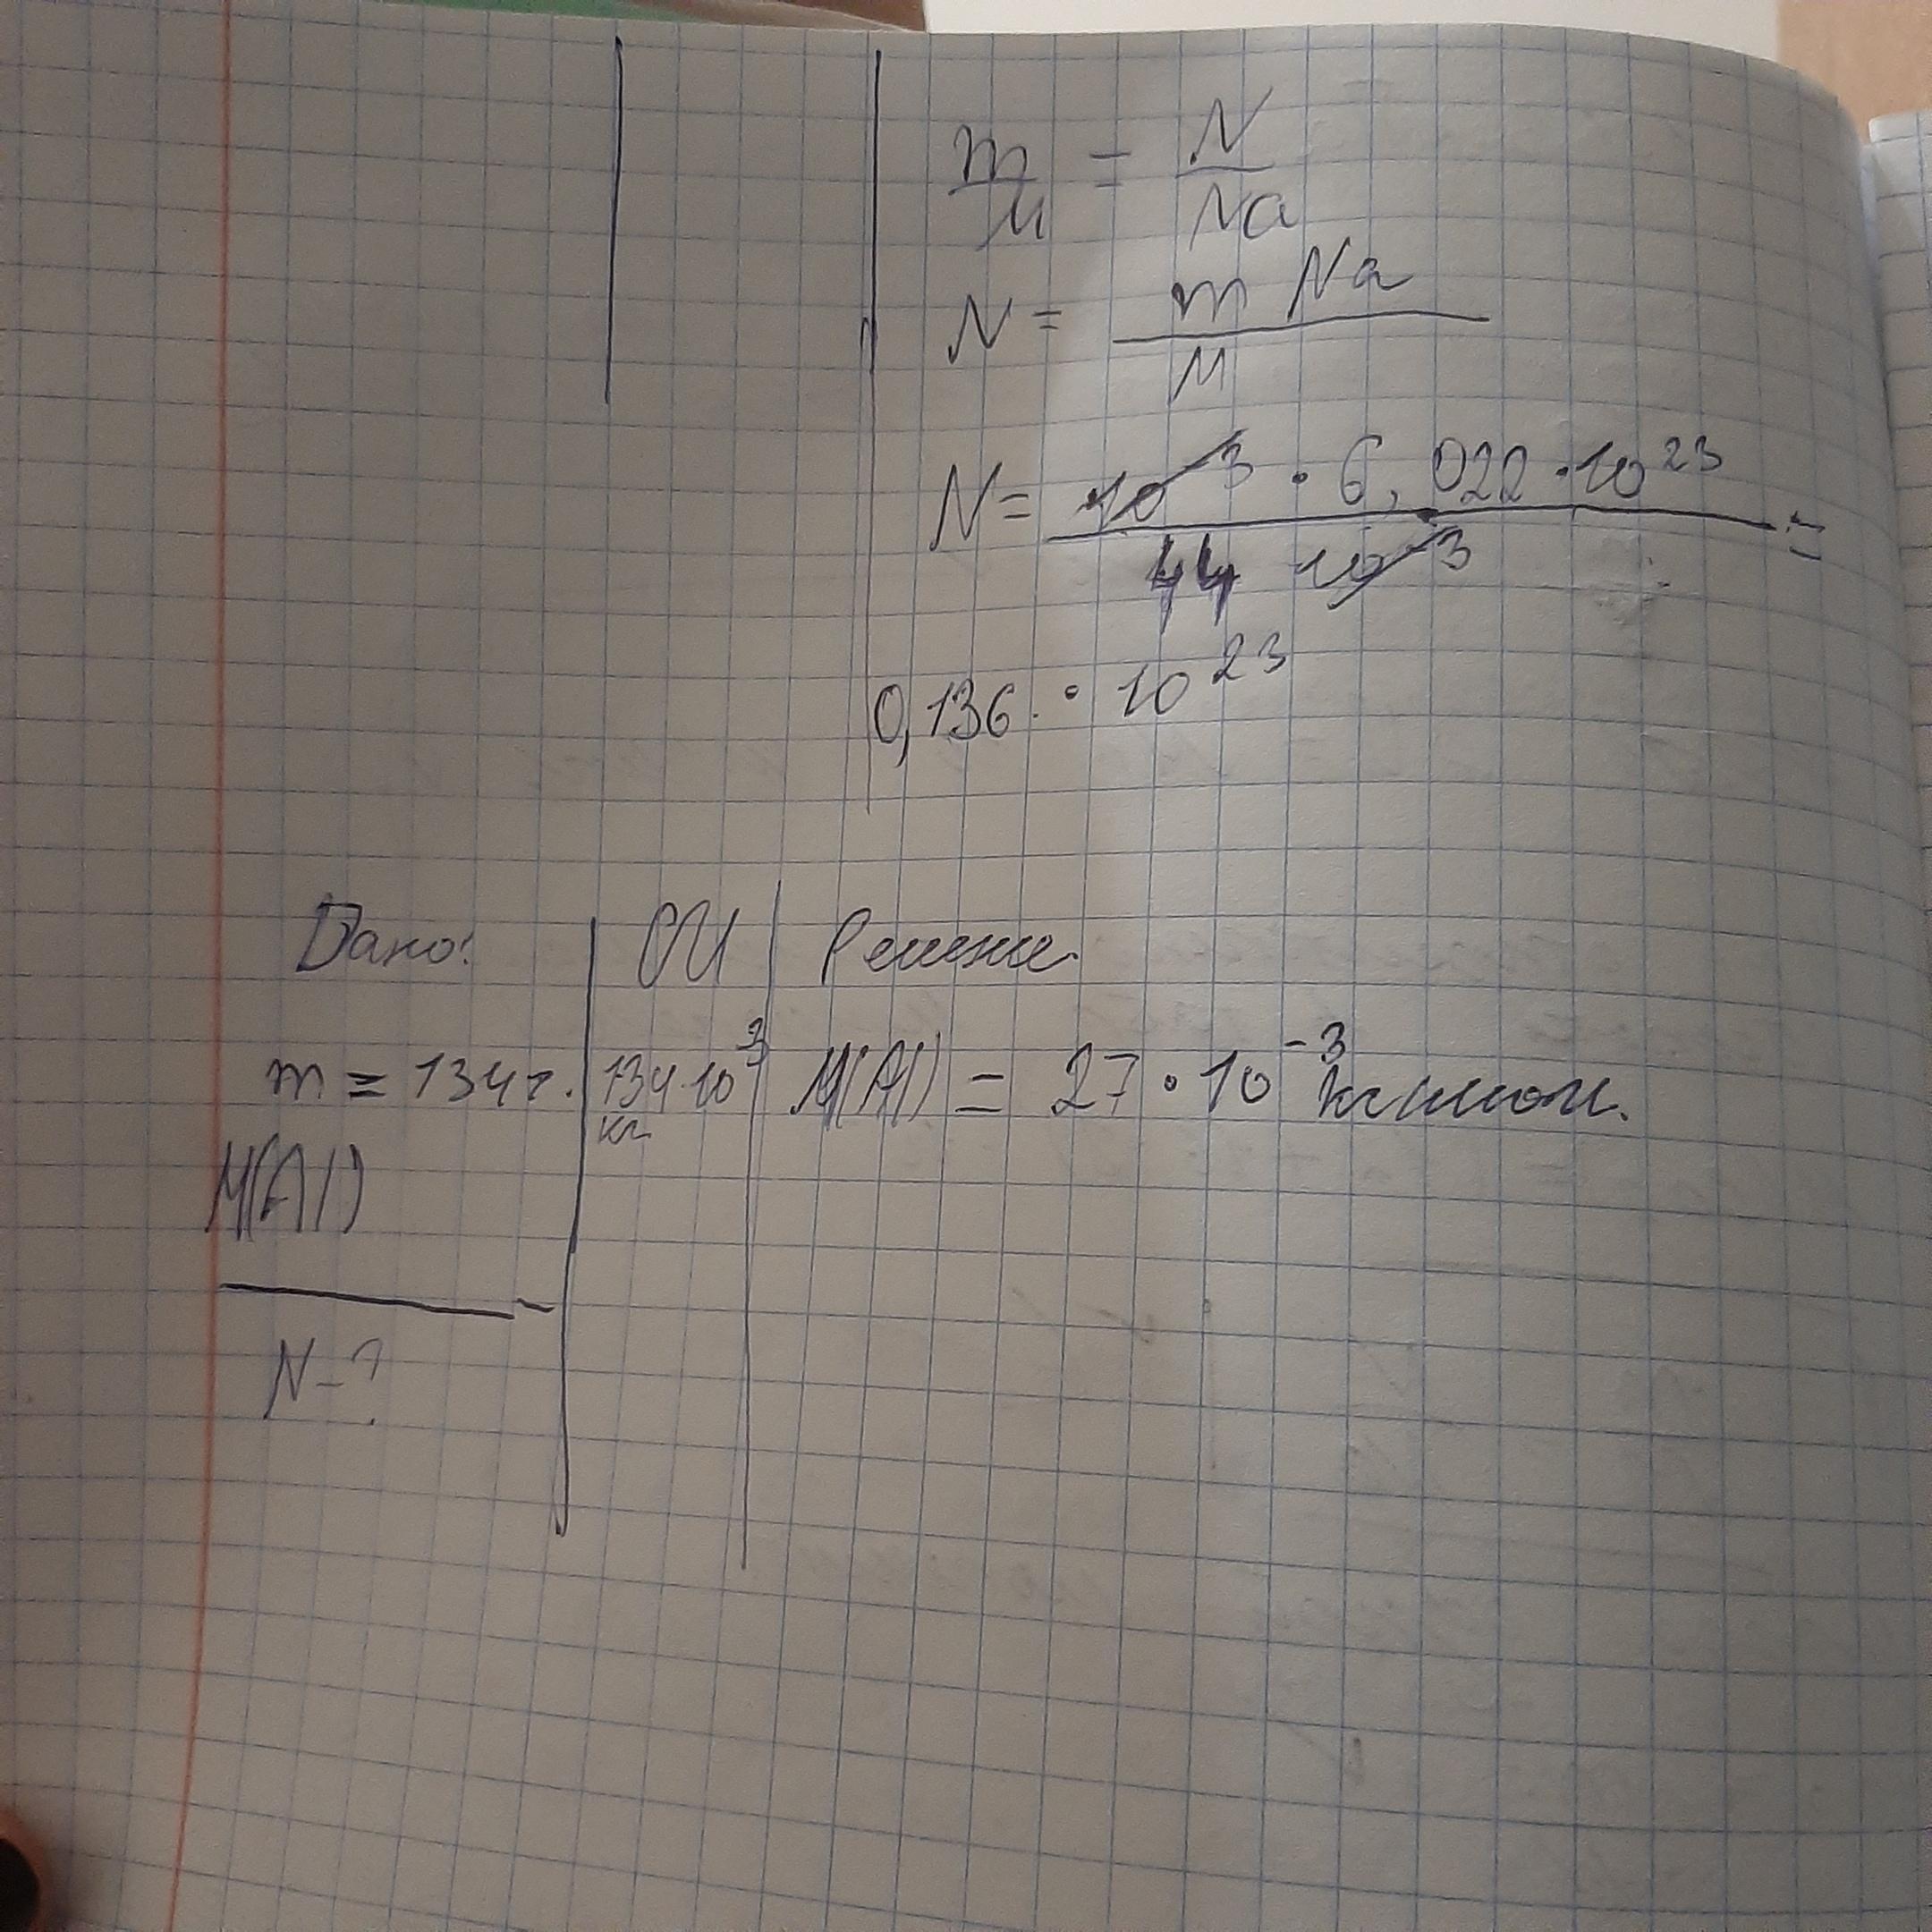 m/M = N/Na
N = m Na / M
N = 10^-3 · 6,022 · 10^23 / 44 10^-3 =
0,136 · 10^23
Дано: СИ Решение
m = 134 г. 134·10^3 кг M(Al) = 27 · 10^-3 кг/моль.
M(Al)
N - ?